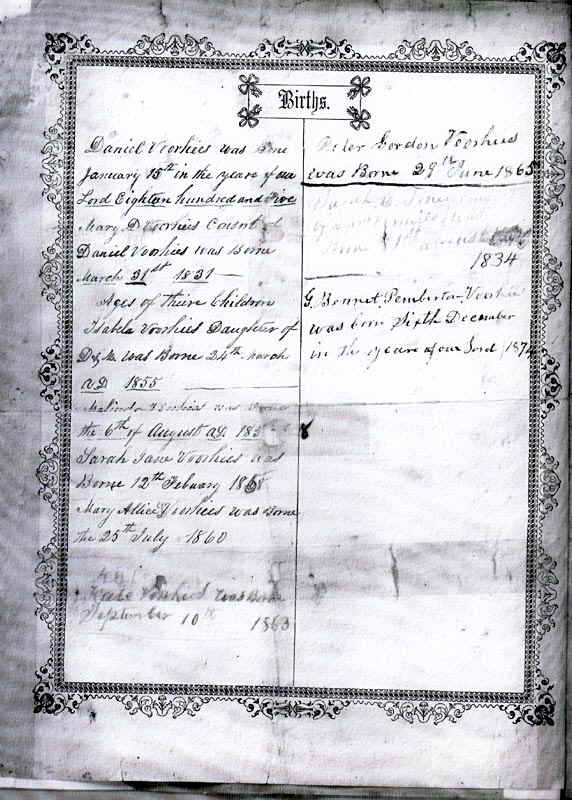 Births.
Daniel Voorhies was Borne
January 15th in the year of our
Lord Eighteen hundred and Five
Mary D Voorhies Consort of
Daniel Voorhies was Borne
March 21st 1831
Ages of theire Children
Isabela Voorhies Daughter of
D & M was Borne 24th March
AD 1855
Melinda Voorhies was Borne
the 6th of August AD 185
Sarah Jane Voorhies was
Borne 12th Febuary 1858
Mary Allice Voorhies was Borne
the 25th July 1860
Voorhies was Borne
September 10th 1863
Gordon Voorhies
was Borne 29th June 1865
Sarah
1834
G. Bonnet Pemberton Voorhies
was born Sixth December
in the yeare of our Lord 1874